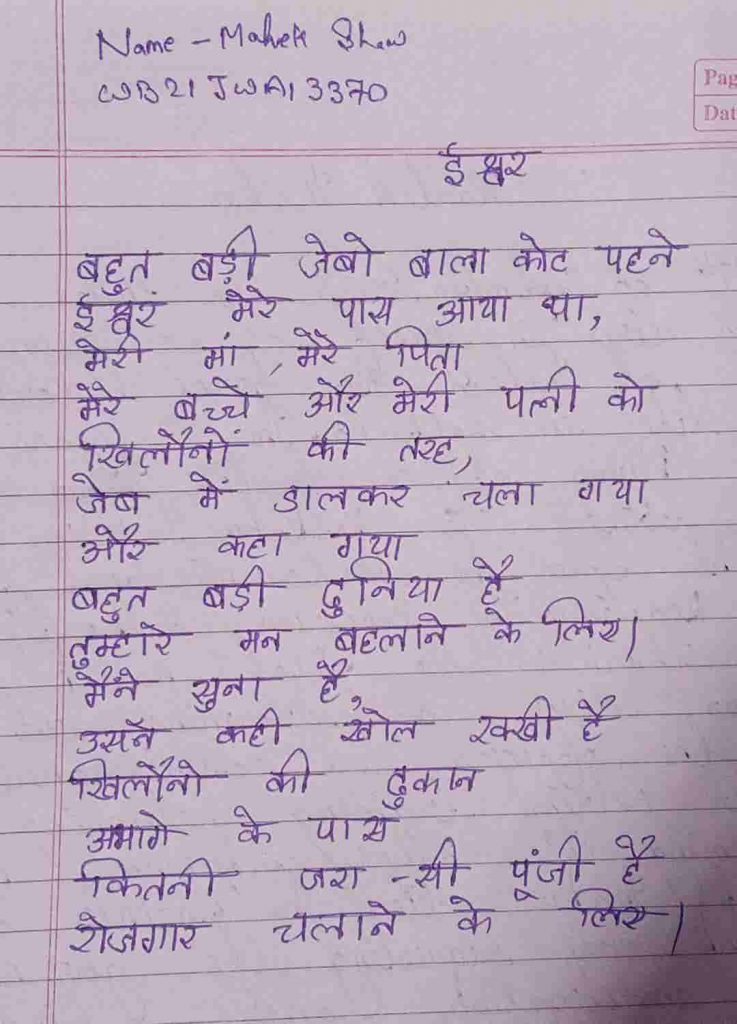 Name - Mahek Shaw
WB21JWA13370
Pag
Dat
ईश्वर
बहुत बड़ी जेबो बाला कोट पहने
ईश्वर मेरे पास आया था,
मेरी मां, मेरे पिता
मेरे बच्चे और मेरी पत्नी को
खिलौनों की तरह,
जेब में डालकर चला गया
और कहा गया
बहुत बड़ी दुनिया है
तुम्हारे मन बहलाने के लिए।
मैंने सुना है,
उसने कही खोल रक्खी है
खिलौनो की दुकान
अभागे के पास
कितनी जरा-सी पूंजी है
रोजगार चलाने के लिए।